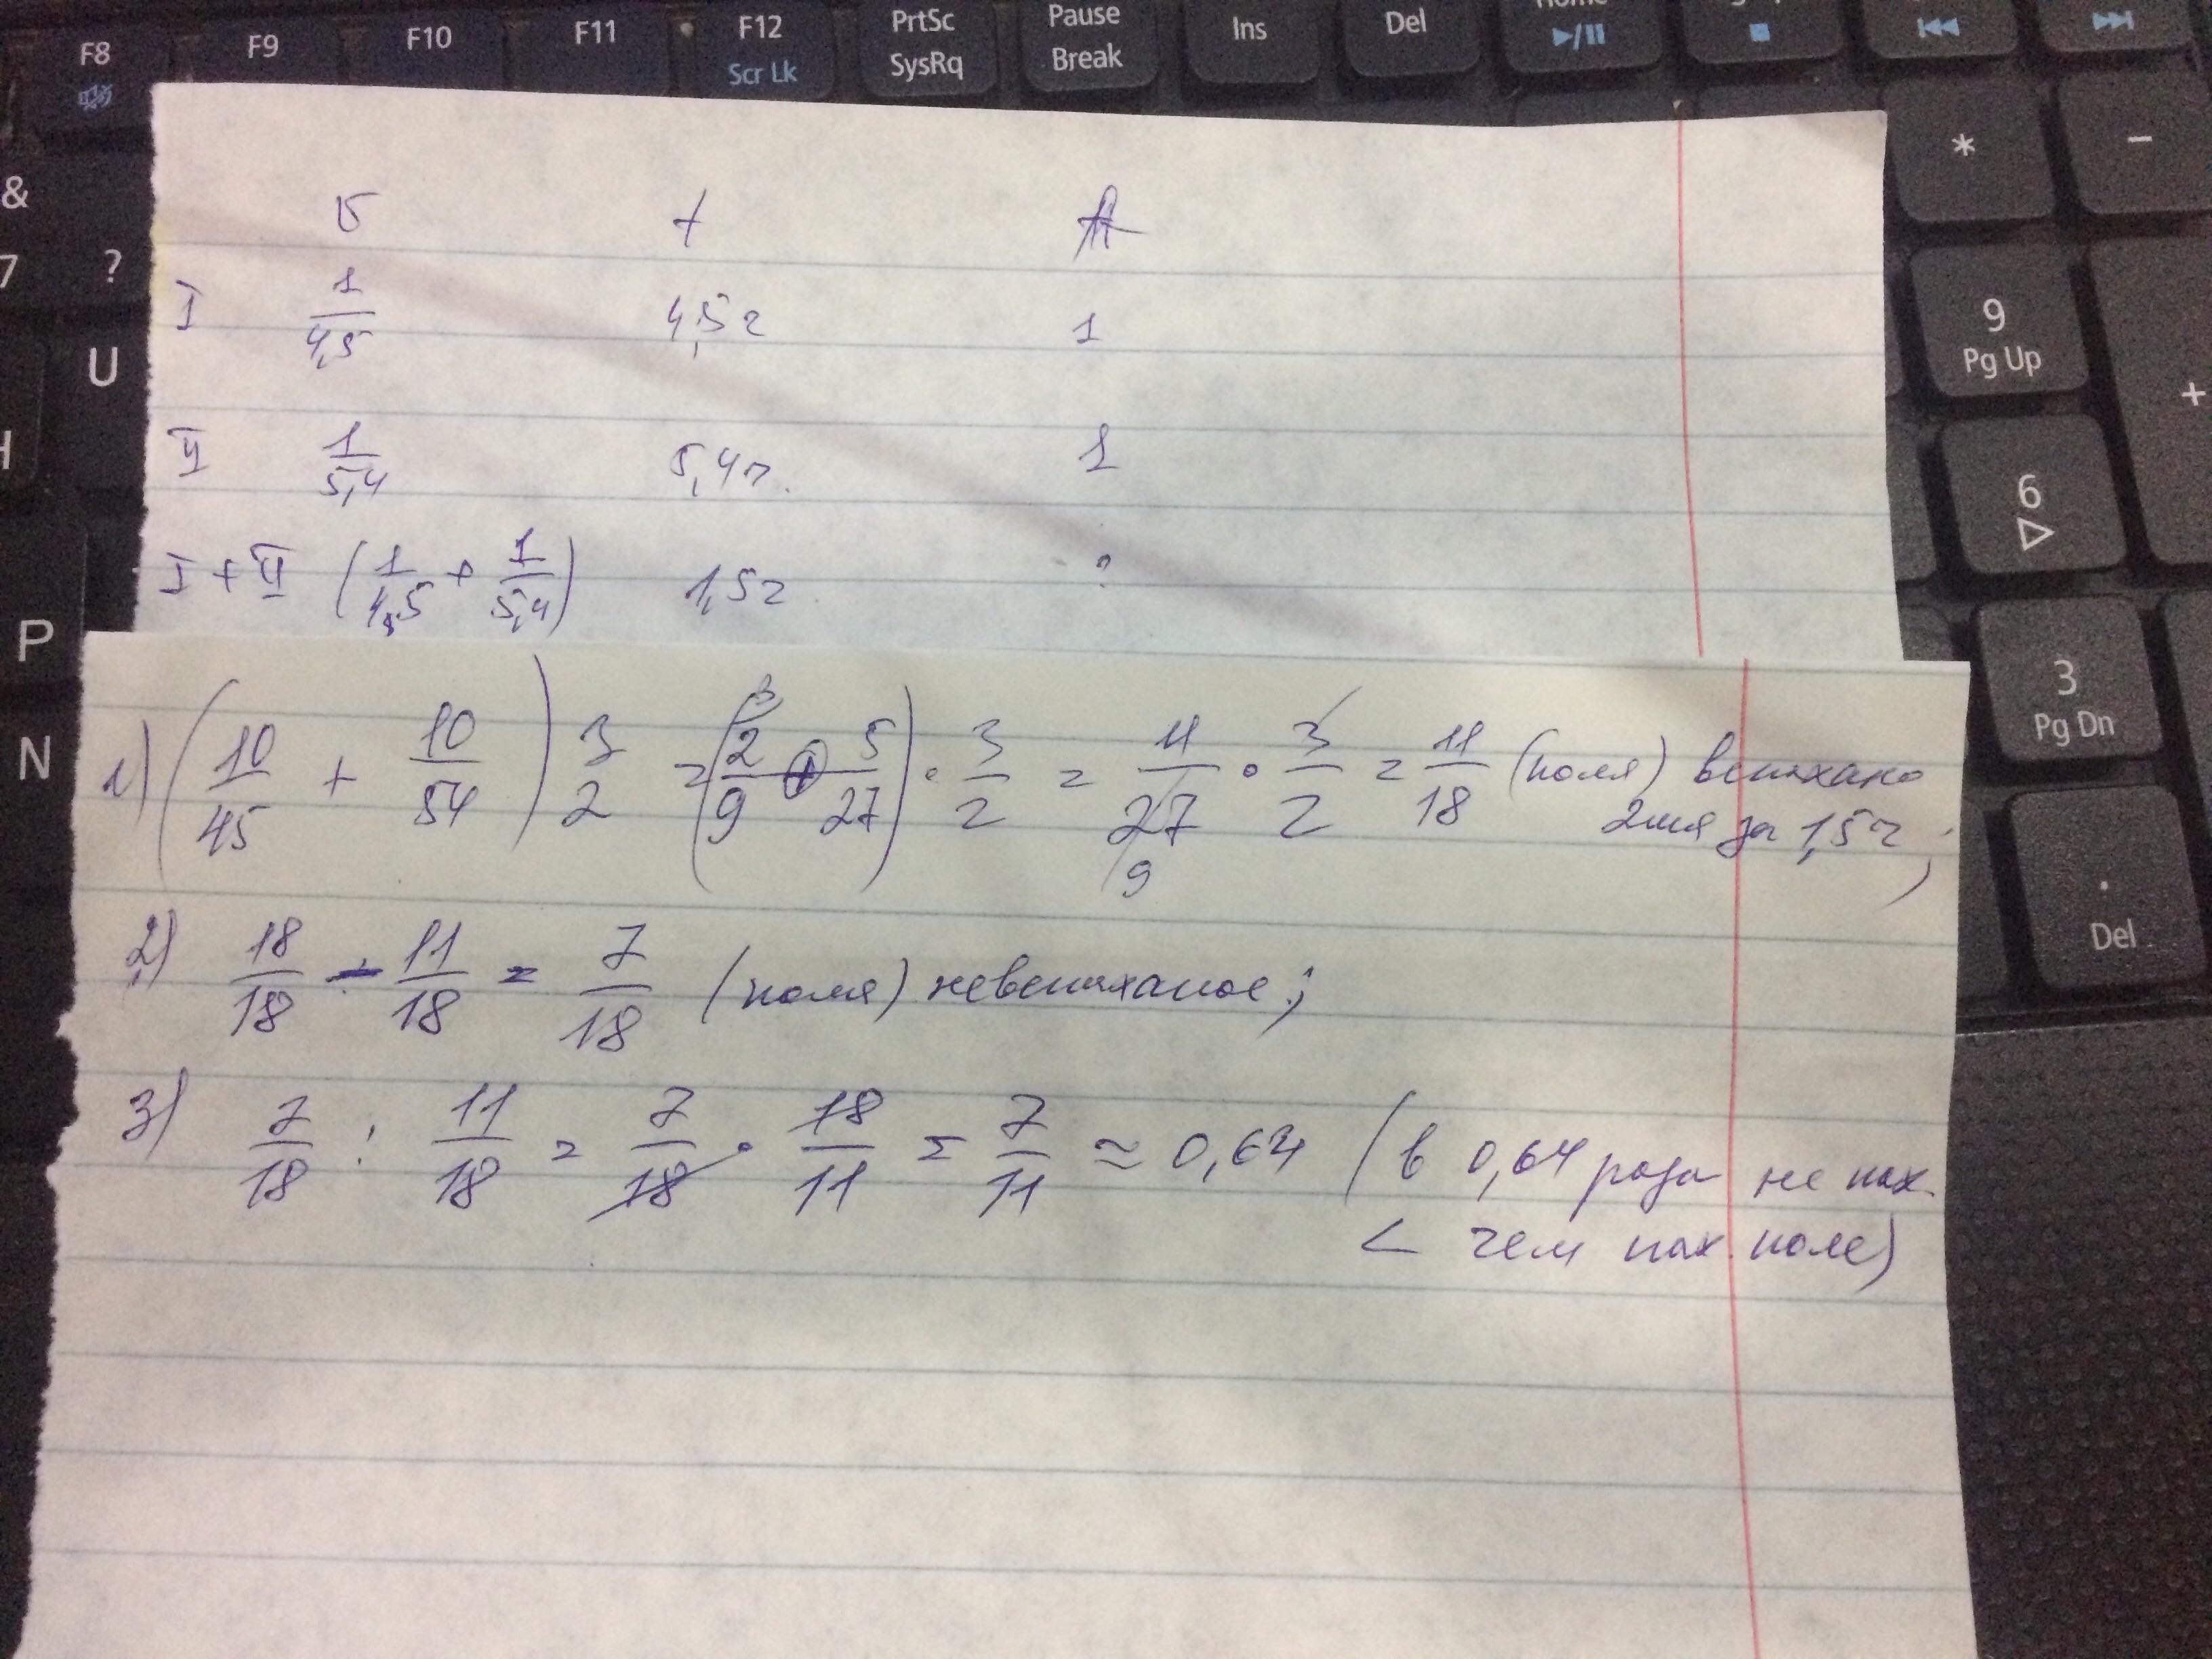 F8 F9 F10 F11 F12 PrtSc Pause Ins Del
Scr Lk SysRq Break
& * -
7 ?
U 9
Pg Up
+
6
P 3
Pg Dn
N .
Del
v t A
I 1/4,5 4,5ч 1
II 1/5,4 5,4ч. 1
I + II (1/4,5 + 1/5,4) 1,5ч ?
1) (10/45 + 10/54) 3/2 = (2/9 + 5/27) · 3/2 = 11/27 · 3/2 = 11/18 (поля) вспахано
3
9
2мя за 1,5ч;
2) 18/18 - 11/18 = 7/18 (поля) невспаханое;
3) 7/18 : 11/18 = 7/18 · 18/11 = 7/11 ≈ 0,64 (в 0,64 раза не пах.
< чем пах. поле)